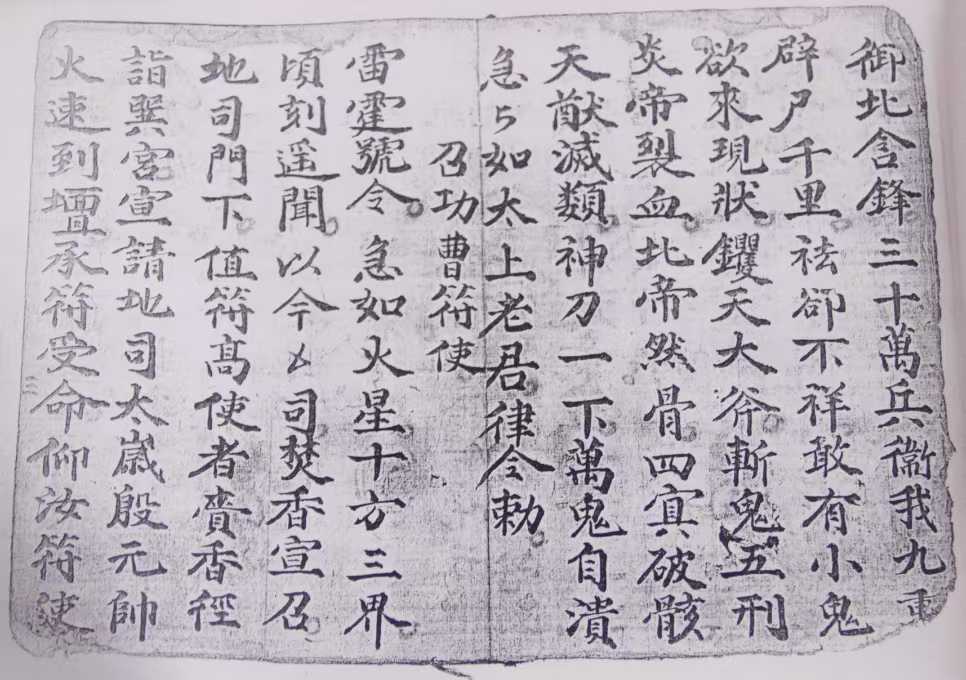 御北含鋒三十萬兵衞我九重
辟尸千里祛郤不祥敢有小鬼
欲來現狀钁天大斧斬鬼五刑
炎帝裂血北帝然骨四寅破骸
天猷滅類神刀一下萬鬼自潰
急々如太上老君律令勅
召功曹符使
雷霆號令急如火星十方三界
頃刻遥聞以今厶司焚香宣召
地司門下值符髙使者賫香徑
詣巽宮宣請地司太歲殷元帥
火速到壇承符受命仰汝符使